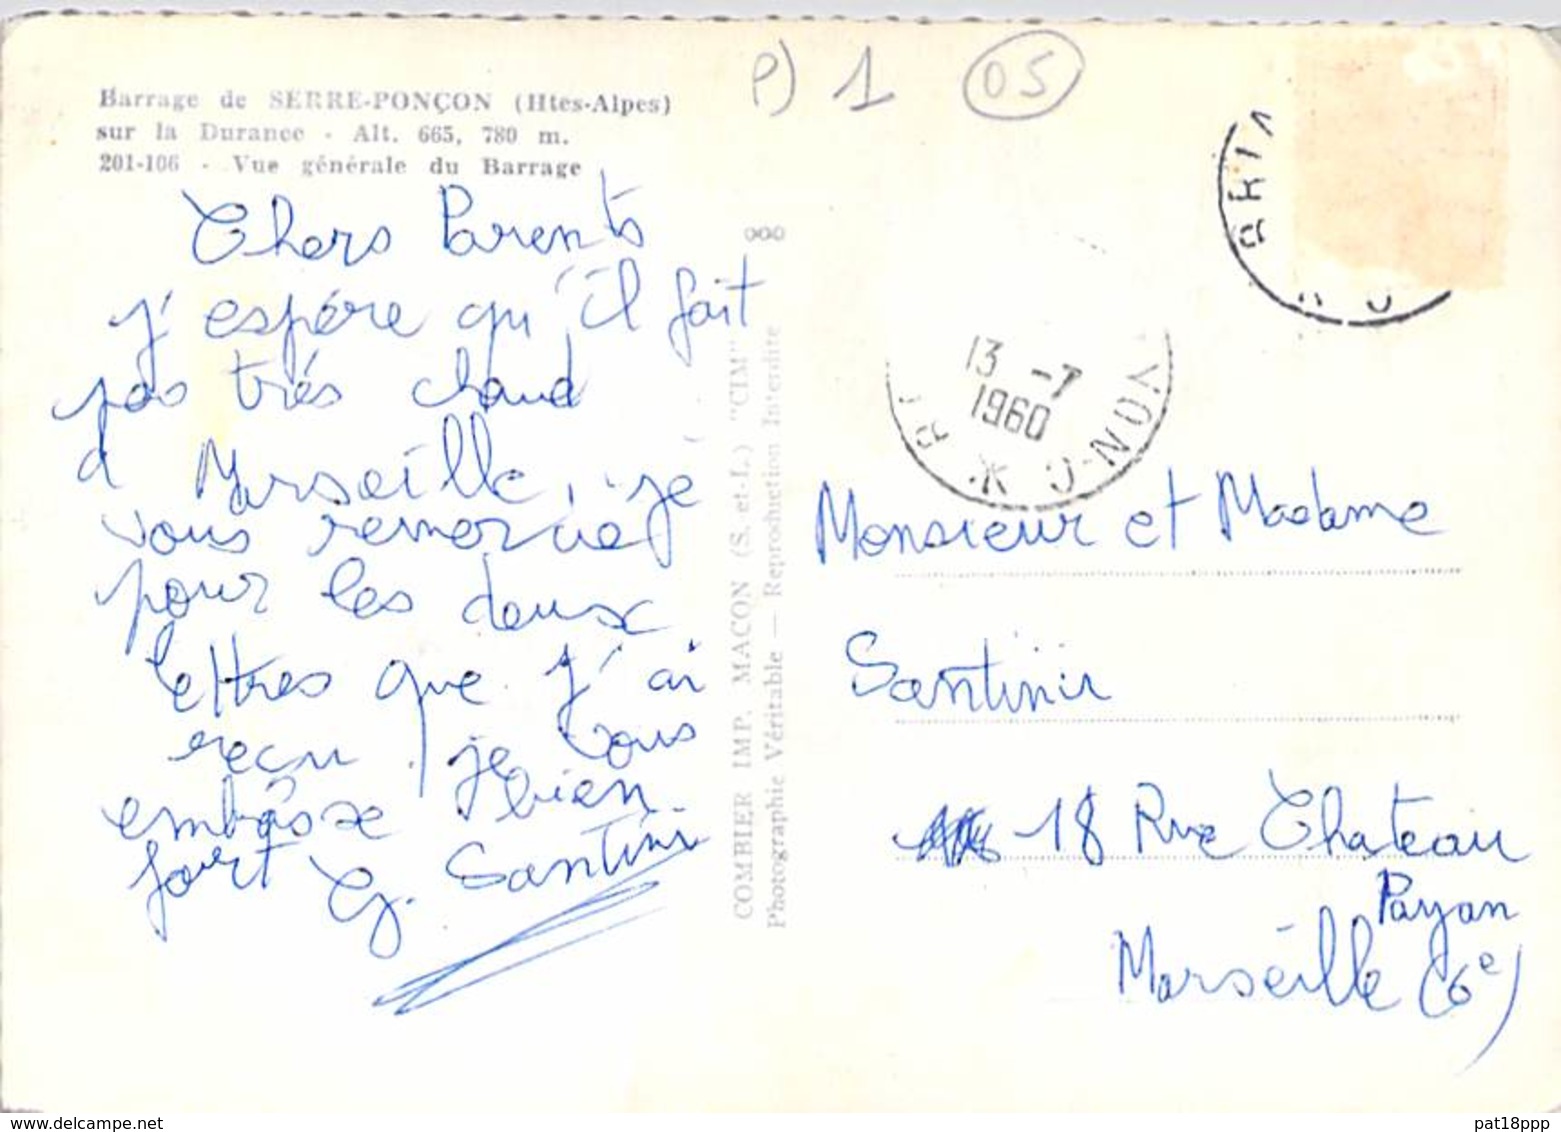 P) 1 05
Barrage de SERRE-PONÇON (Htes-Alpes)
sur la Durance - Alt. 665, 780 m.
201-106 - Vue générale du Barrage
Chers Parents
j'espére qu'il fait
pas trés chaud
a Marseille, je
vous remercie
pour les deux
lettres que j'ai
reçu, je vous
embrasse bien
fort G. Santini
000
COMBIER IMP. MACON (S. et-L.) "CIM"
Photographie Véritable — Reproduction Interdite
13 -7
1960
Monsieur et Madame
Santini
18 Rue Chateau
Payan
Marseille (6e)
delcampe.net
pat18ppp